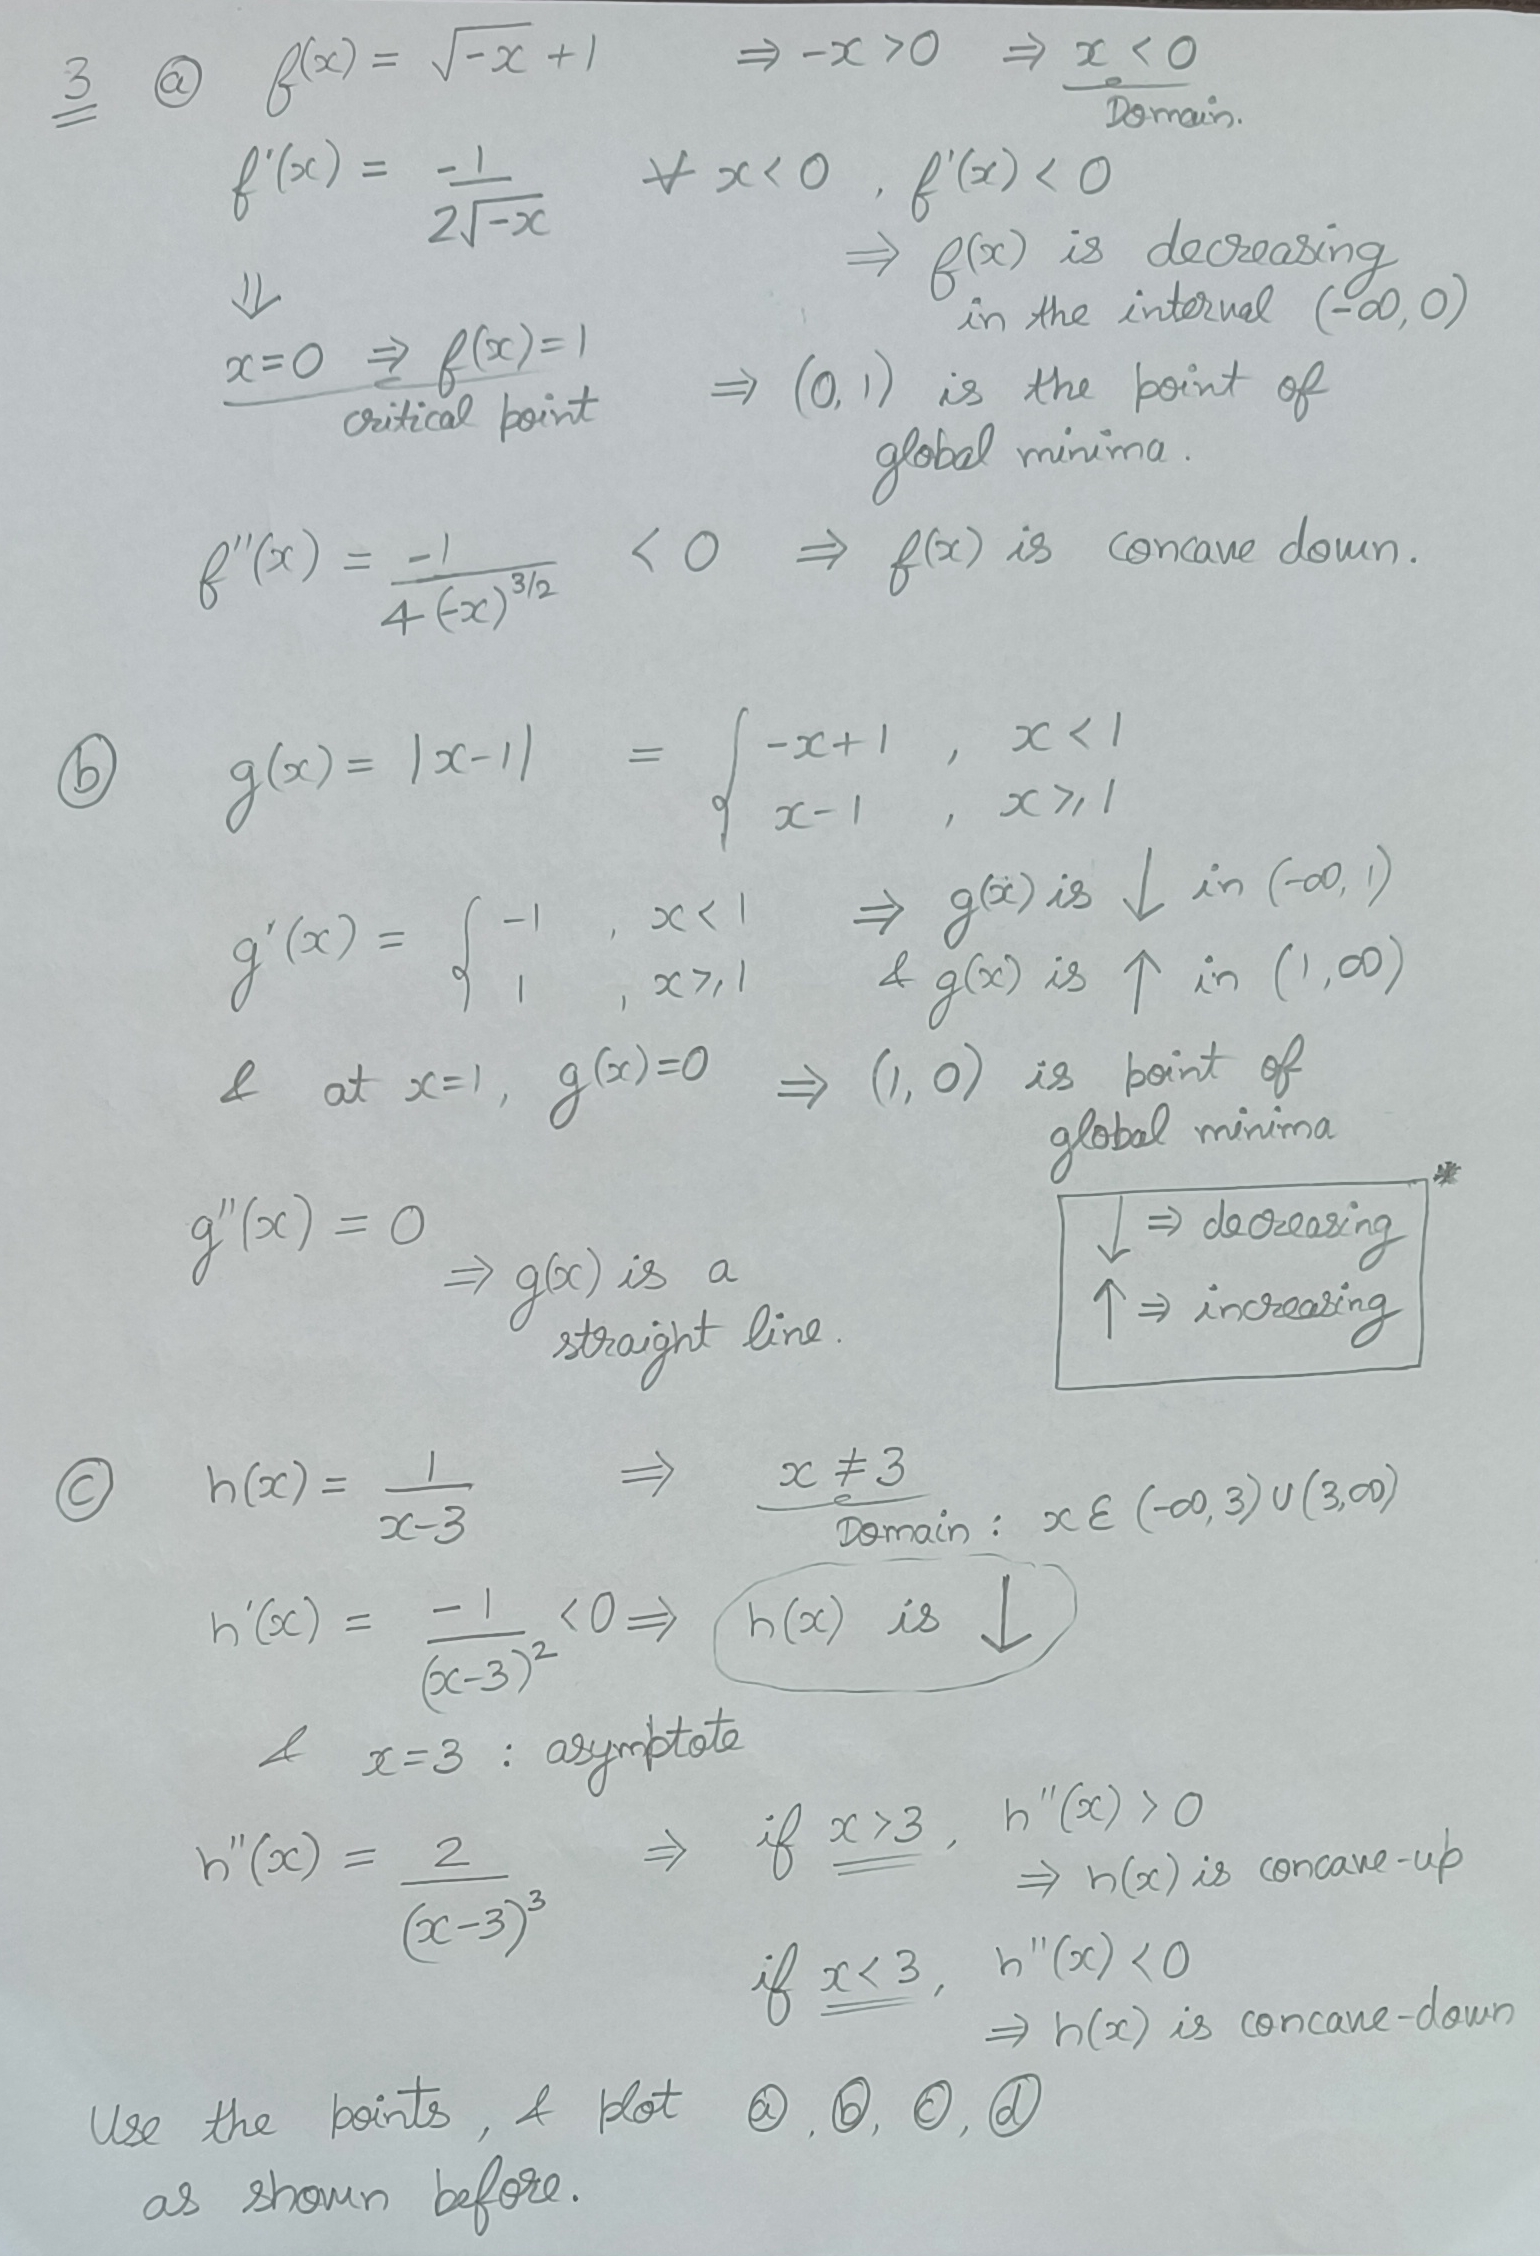 3 ⓐ f(x) = √-x + 1 ⇒ -x > 0 ⇒ x < 0
Domain.
f'(x) = -1/(2√-x) ∀ x < 0 , f'(x) < 0
⇒ f(x) is decreasing
in the interval (-∞, 0)
⇓
x = 0 ⇒ f(x) = 1
critical point
⇒ (0, 1) is the point of
global minima.
f''(x) = -1/(4(-x)^3/2) < 0 ⇒ f(x) is concave down.
ⓑ g(x) = |x-1| = { -x+1 , x < 1
x-1 , x ⩾ 1
g'(x) = { -1 , x < 1 ⇒ g(x) is ↓ in (-∞, 1)
1 , x ⩾ 1 & g(x) is ↑ in (1, ∞)
& at x = 1, g(x) = 0 ⇒ (1, 0) is point of
global minima
g''(x) = 0
⇒ g(x) is a
straight line.
*
↓ ⇒ decreasing
↑ ⇒ increasing
ⓒ h(x) = 1/(x-3) ⇒ x ≠ 3
Domain : x ∈ (-∞, 3) ∪ (3, ∞)
h'(x) = -1/(x-3)² < 0 ⇒ h(x) is ↓
& x = 3 : asymptote
h''(x) = 2/(x-3)³ ⇒ if x > 3, h''(x) > 0
⇒ h(x) is concave-up
if x < 3, h''(x) < 0
⇒ h(x) is concave-down
Use the points, & plot ⓐ, ⓑ, ⓒ, ⓓ
as shown before.